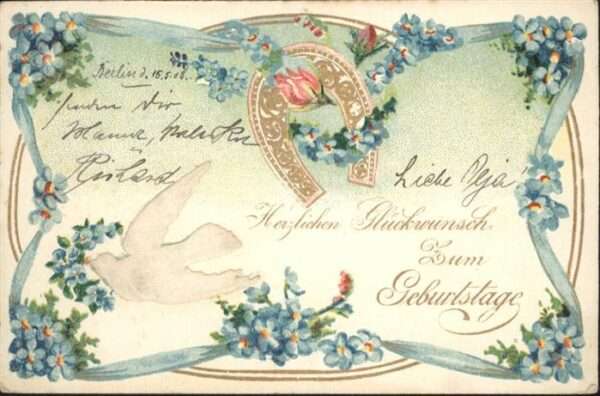 Berlin d. 15.5.06.
senden Dir
Mama, 
Richard
Liebe Olja!
Herzlichen Glückwunsch
Zum
Geburtstage